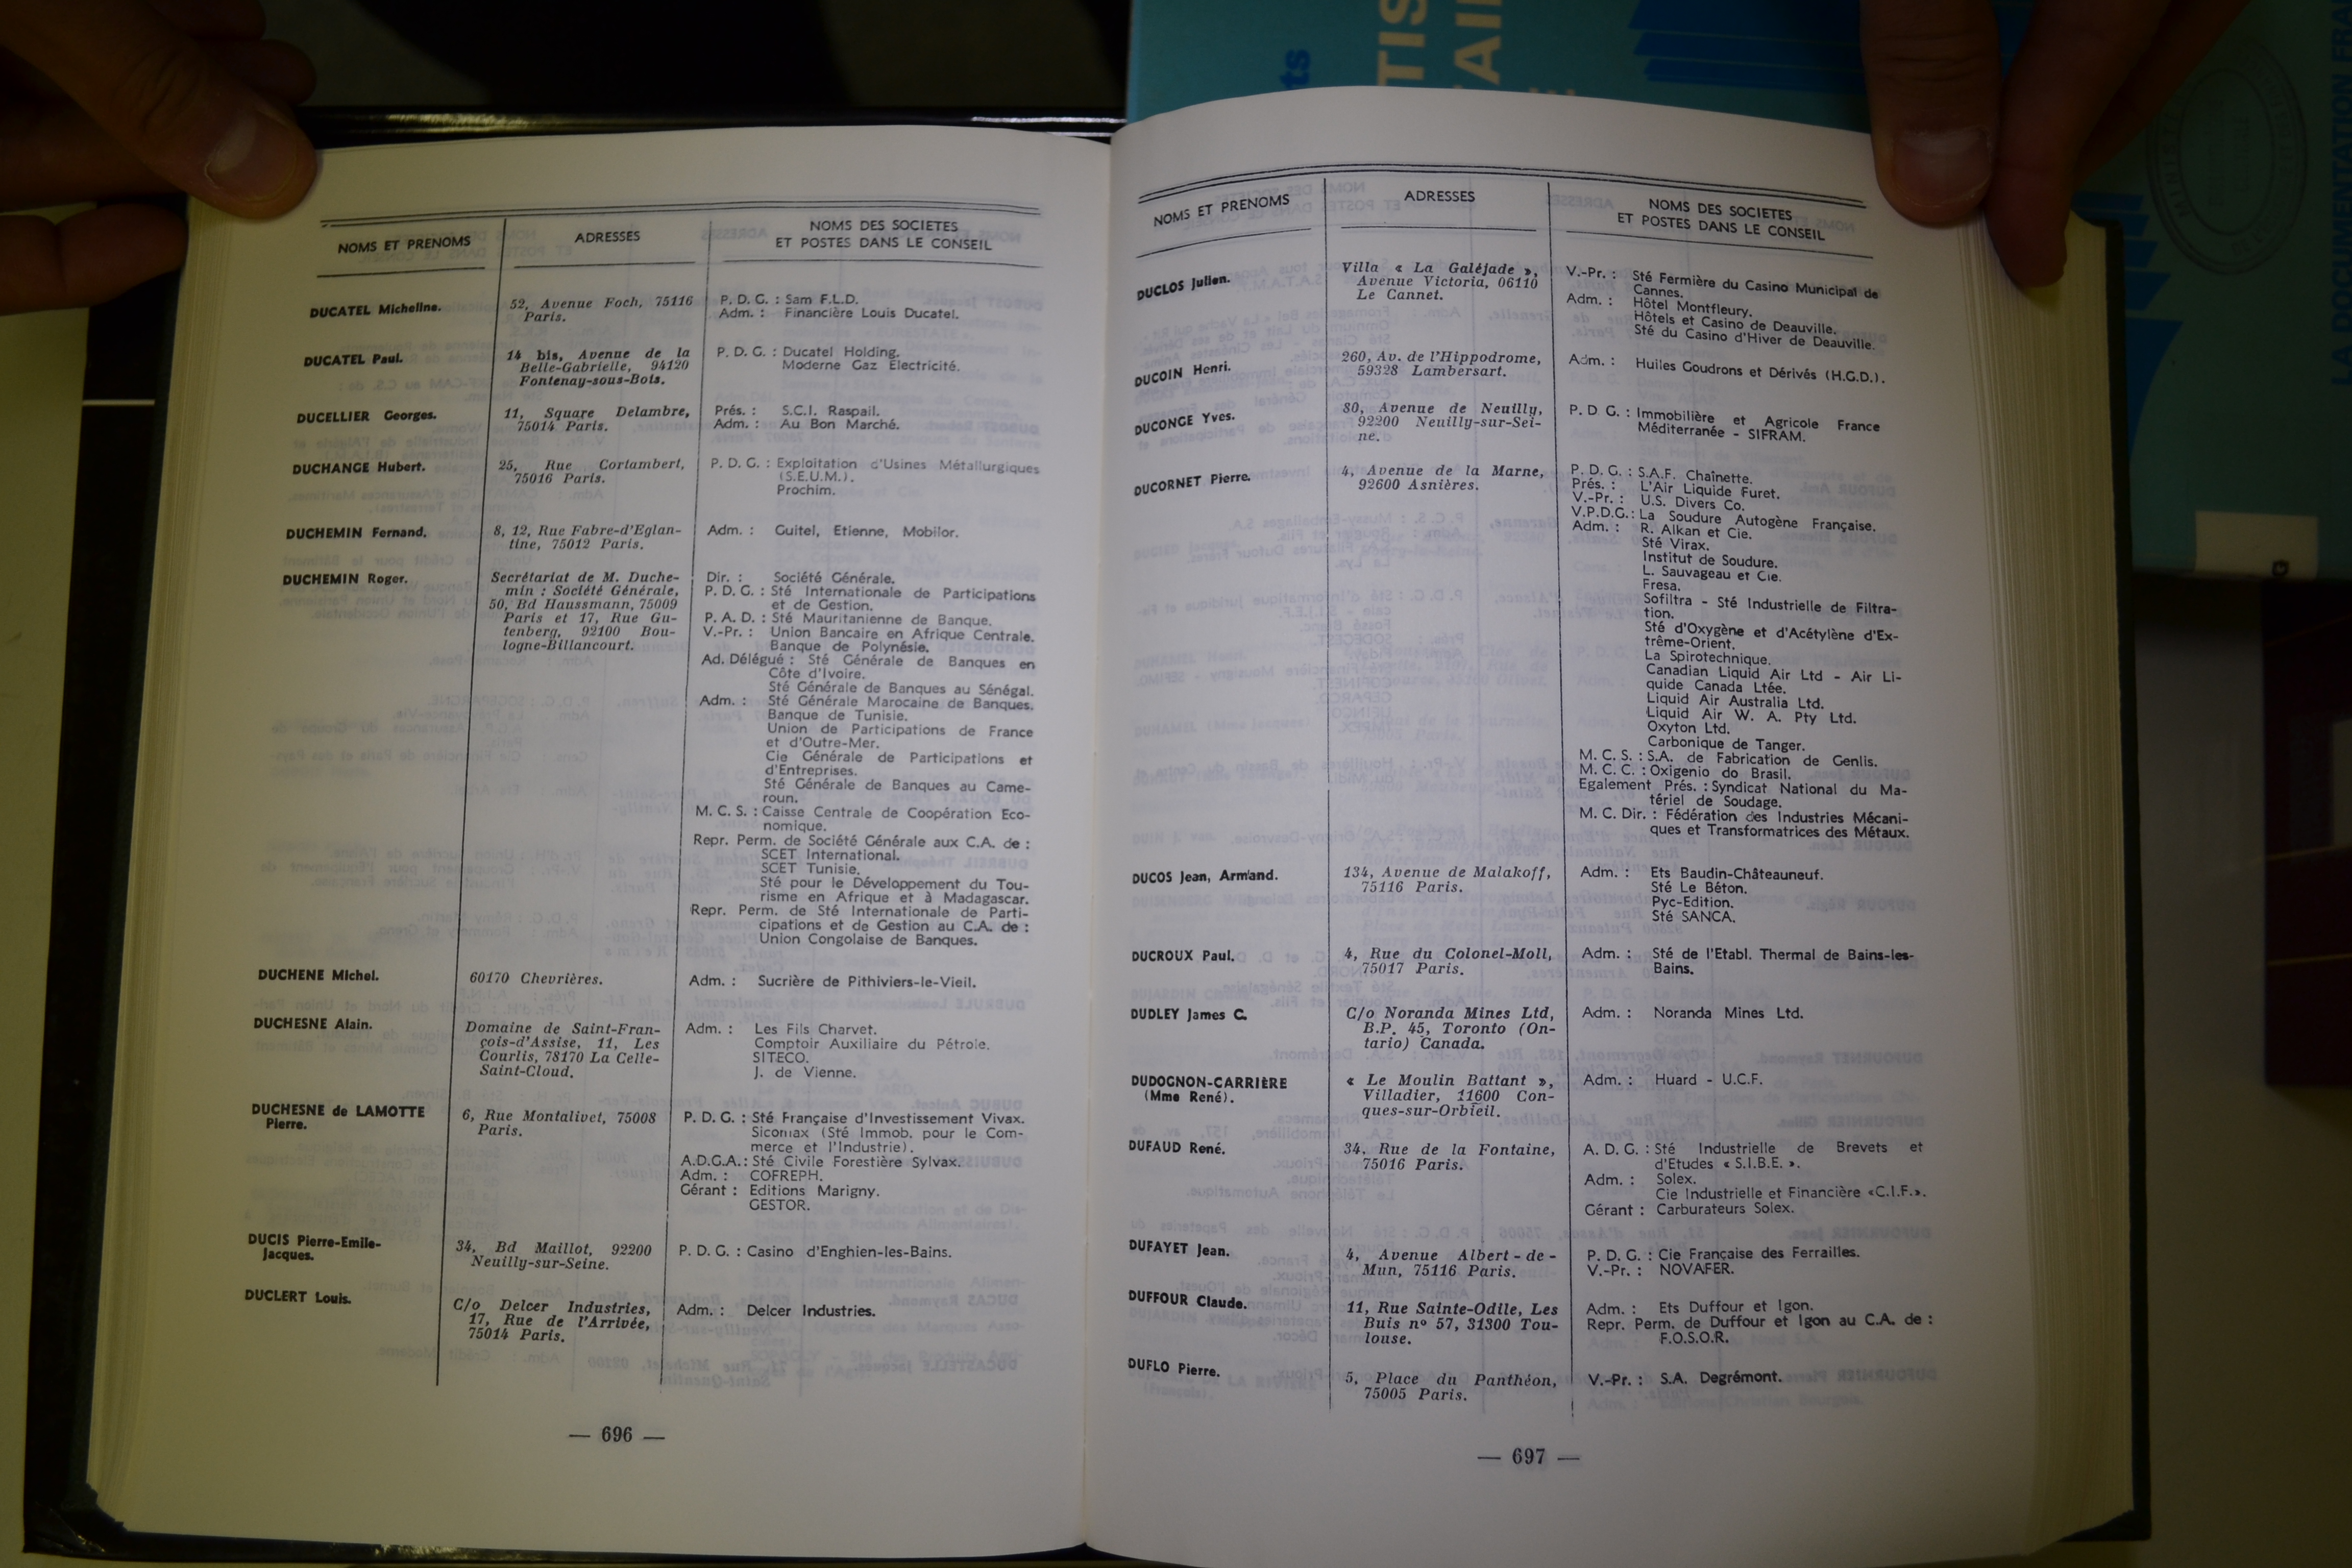 NOMS ET PRENOMS
ADRESSES
NOMS DES SOCIETES
ET POSTES DANS LE CONSEIL
DUCATEL Micheline.
52, Avenue Foch, 75116
Paris.
P. D. G. : Sam F.L.D.
Adm. : Financière Louis Ducatel.
DUCATEL Paul.
14 bis, Avenue de la
Belle-Gabrielle, 94120
Fontenay-sous-Bois.
P. D. G. : Ducatel Holding.
Moderne Gaz Electricité.
DUCELLIER Georges.
11, Square Delambre,
75014 Paris.
Prés. : S.C.I. Raspail.
Adm. : Au Bon Marché.
DUCHANGE Hubert.
25, Rue Cortambert,
75016 Paris.
P. D. G. : Exploitation d'Usines Métallurgiques
(S.E.U.M.).
Prochim.
DUCHEMIN Fernand.
8, 12, Rue Fabre-d'Eglan-
tine, 75012 Paris.
Adm. : Guitel, Etienne, Mobilor.
DUCHEMIN Roger.
Secrétariat de M. Duche-
min : Société Générale,
50, Bd Haussmann, 75009
Paris et 17, Rue Gu-
tenberg, 92100 Bou-
logne-Billancourt.
Dir. : Société Générale.
P. D. G. : Sté Internationale de Participations
et de Gestion.
P. A. D. : Sté Mauritanienne de Banque.
V.-Pr. : Union Bancaire en Afrique Centrale.
Banque de Polynésie.
Ad. Délégué : Sté Générale de Banques en
Côte d'Ivoire.
Sté Générale de Banques au Sénégal.
Adm. : Sté Générale Marocaine de Banques.
Banque de Tunisie.
Union de Participations de France
et d'Outre-Mer.
Cie Générale de Participations et
d'Entreprises.
Sté Générale de Banques au Came-
roun.
M. C. S. : Caisse Centrale de Coopération Eco-
nomique.
Repr. Perm. de Société Générale aux C.A. de :
SCET International.
SCET Tunisie.
Sté pour le Développement du Tou-
risme en Afrique et à Madagascar.
Repr. Perm. de Sté Internationale de Parti-
cipations et de Gestion au C.A. de :
Union Congolaise de Banques.
DUCHENE Michel.
60170 Chevrières.
Adm. : Sucrière de Pithiviers-le-Vieil.
DUCHESNE Alain.
Domaine de Saint-Fran-
çois-d'Assise, 11, Les
Courlis, 78170 La Celle-
Saint-Cloud.
Adm. : Les Fils Charvet.
Comptoir Auxiliaire du Pétrole.
SITECO.
J. de Vienne.
DUCHESNE de LAMOTTE
Pierre.
6, Rue Montalivet, 75008
Paris.
P. D. G. : Sté Française d'Investissement Vivax.
Sicomax (Sté Immob. pour le Com-
merce et l'Industrie).
A.D.G.A.: Sté Civile Forestière Sylvax.
Adm. : COFREPH.
Gérant : Editions Marigny.
GESTOR.
DUCIS Pierre-Emile-
Jacques.
34, Bd Maillot, 92200
Neuilly-sur-Seine.
P. D. G. : Casino d'Enghien-les-Bains.
DUCLERT Louis.
C/o Delcer Industries,
17, Rue de l'Arrivée,
75014 Paris.
Adm. : Delcer Industries.
— 696 —
NOMS ET PRENOMS
ADRESSES
NOMS DES SOCIETES
ET POSTES DANS LE CONSEIL
DUCLOS Julien.
Villa « La Galéjade »,
Avenue Victoria, 06110
Le Cannet.
V.-Pr. : Sté Fermière du Casino Municipal de
Cannes.
Adm. : Hôtel Montfleury.
Hôtels et Casino de Deauville.
Sté du Casino d'Hiver de Deauville.
DUCOIN Henri.
260, Av. de l'Hippodrome,
59328 Lambersart.
Adm. : Huiles Goudrons et Dérivés (H.G.D.).
DUCONGE Yves.
80, Avenue de Neuilly,
92200 Neuilly-sur-Sei-
ne.
P. D G. : Immobilière et Agricole France
Méditerranée - SIFRAM.
DUCORNET Pierre.
4, Avenue de la Marne,
92600 Asnières.
P. D. G. : S.A.F. Chaînette.
Prés. : L'Air Liquide Furet.
V.-Pr. : U.S. Divers Co.
V.P.D.G.: La Soudure Autogène Française.
Adm. : R. Alkan et Cie.
Sté Virax.
Institut de Soudure.
L. Sauvageau et Cie.
Fresa.
Sofiltra - Sté Industrielle de Filtra-
tion.
Sté d'Oxygène et d'Acétylène d'Ex-
trême-Orient.
La Spirotechnique.
Canadian Liquid Air Ltd - Air Li-
quide Canada Ltée.
Liquid Air Australia Ltd.
Liquid Air W. A. Pty Ltd.
Oxyton Ltd.
Carbonique de Tanger.
M. C. S. : S.A. de Fabrication de Genlis.
M. C. C. : Oxigenio do Brasil.
Egalement Prés. : Syndicat National du Ma-
tériel de Soudage.
M. C. Dir. : Fédération des Industries Mécani-
ques et Transformatrices des Métaux.
DUCOS Jean, Armand.
134, Avenue de Malakoff,
75116 Paris.
Adm. : Ets Baudin-Châteauneuf.
Sté Le Béton.
Pyc-Edition.
Sté SANCA.
DUCROUX Paul.
4, Rue du Colonel-Moll,
75017 Paris.
Adm. : Sté de l'Etabl. Thermal de Bains-les-
Bains.
DUDLEY James C.
C/o Noranda Mines Ltd,
B.P. 45, Toronto (On-
tario) Canada.
Adm. : Noranda Mines Ltd.
DUDOGNON-CARRIÈRE
(Mme René).
« Le Moulin Battant »,
Villadier, 11600 Con-
ques-sur-Orbieil.
Adm. : Huard - U.C.F.
DUFAUD René.
34, Rue de la Fontaine,
75016 Paris.
A. D. G. : Sté Industrielle de Brevets et
d'Etudes « S.I.B.E. ».
Adm. : Solex.
Cie Industrielle et Financière «C.I.F.».
Gérant : Carburateurs Solex.
DUFAYET Jean.
4, Avenue Albert-de-
Mun, 75116 Paris.
P. D. G. : Cie Française des Ferrailles.
V.-Pr. : NOVAFER.
DUFFOUR Claude.
11, Rue Sainte-Odile, Les
Buis nº 57, 31300 Tou-
louse.
Adm. : Ets Duffour et Igon.
Repr. Perm. de Duffour et Igon au C.A. de :
F.O.S.O.R.
DUFLO Pierre.
5, Place du Panthéon,
75005 Paris.
V.-Pr. : S.A. Degrémont.
— 697 —